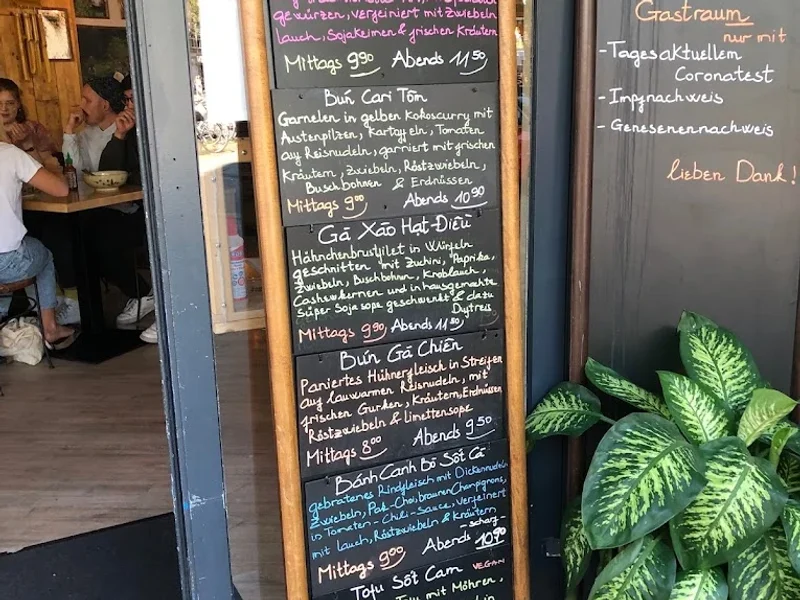 gewürzen, verfeinert mit Zwiebeln
Lauch, Sojakeimen & frischen Kräutern
Mittags 9⁹⁰ Abends 11⁵⁰
Bún Cari Tôm
Garnelen in gelben Kokoscurry mit
Austenpilzen, Kartoffeln, Tomaten
auf Reisnudeln, garniert mit frischen
Kräutern, Zwiebeln, Röstzwiebeln,
Buschbohnen & Erdnüssen
Mittags 9⁰⁰ Abends 10⁹⁰
Gà Xào Hạt-Điều
Hähnchenbrustfilet in Würfeln
geschnitten mit Zuchini, Paprika,
Zwiebeln, Buschbohnen, Knoblauch,
Cashewkernen und in hausgemachte
Süper Soja sope geschwenkt & dazu
Duftreis
Mittags 9⁹⁰ Abends 11⁵⁰
Bún Gà Chiên
Paniertes Hühnerfleisch in Streifen
auf lauwarmen Reisnudeln, mit
frischen Gurken, Kräutern, Erdnüssen
Röstzwiebeln & Limettensope
Mittags 8⁰⁰ Abends 9⁵⁰
Bánh Canh Bò Sốt Cà
gebratenes Rindfleisch mit Dickennudeln
Zwiebeln, Pak-Choi, braunen Champignons,
in Tomaten-Chili-Sauce, verfeinert
mit Lauch, Röstzwiebeln & Kräutern
- scharf -
Mittags 9⁰⁰ Abends 10⁹⁰
Tofu Sốt Cam VEGAN
mit Möhren,
Gastraum
nur mit
- Tagesaktuellem
Coronatest
- Impfnachweis
- Genesenennachweis
lieben Dank!